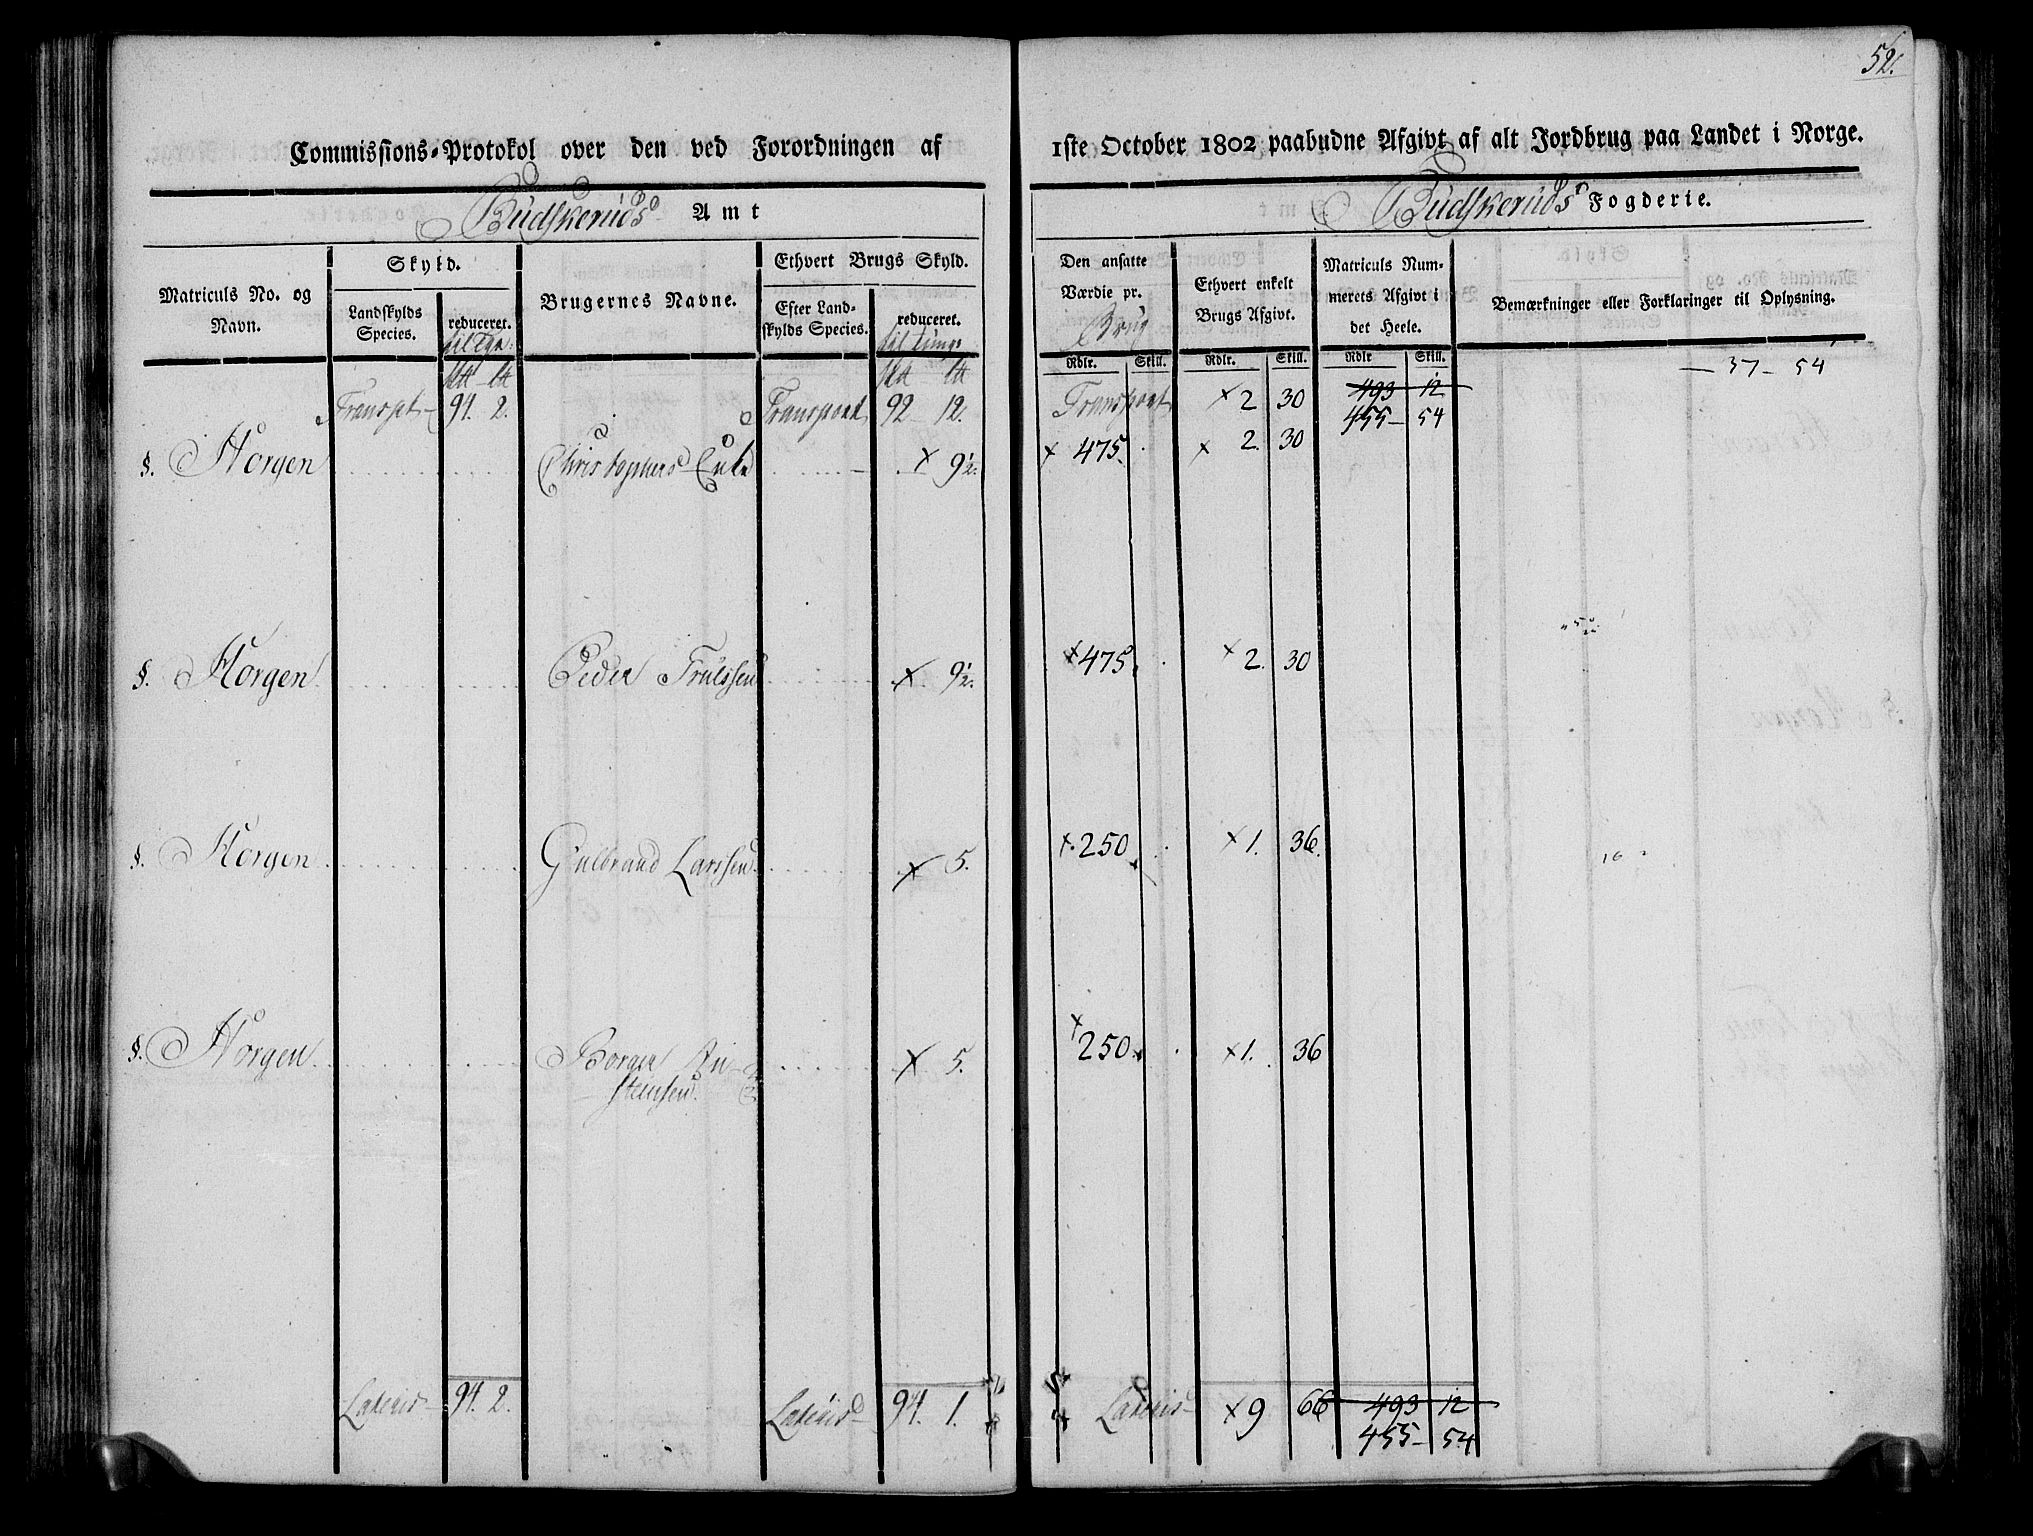 52.
Commissions-Protokol over den ved Forordningen af 1ste October 1802 paabudne Afgivt af alt Jordbrug paa Landet i Norge.
Budskeruds Amt
Budskeruds Fogderie.
Matriculs No. og Navn.
Skyld.
Landskylds Species.
reduceret.
Brugernes Navne.
Ethvert Brugs Skyld.
Efter Landskylds Species.
reduceret.
Den ansatte Værdie pr. Brug
Ethvert enkelt Brugs Afgivt.
Matriculs Nummerets Afgivt i det Heele.
Bemærkninger eller Forklaringer til Oplysning.
Rdlr. Skill. Rdlr. Skill. Rdlr Skill.
Transpt 94. 2. Transport 92 12. Transport × 2 30 493 12 37 - 54
455 - 54
§. Horgen Christophers Enke × 9½. × 475. × 2. 30
§. Horgen Peder Trulssen × 9½. × 475. × 2. 30
§. Horgen Gulbrand Larssen × 5. × 250 × 1. 36.
§. Horgen Borger × 5. × 250 × 1. 36
stensen
Lateris 94. 2. Lateris 94. 1. Lateris × 9 66 493 12
455 - 54